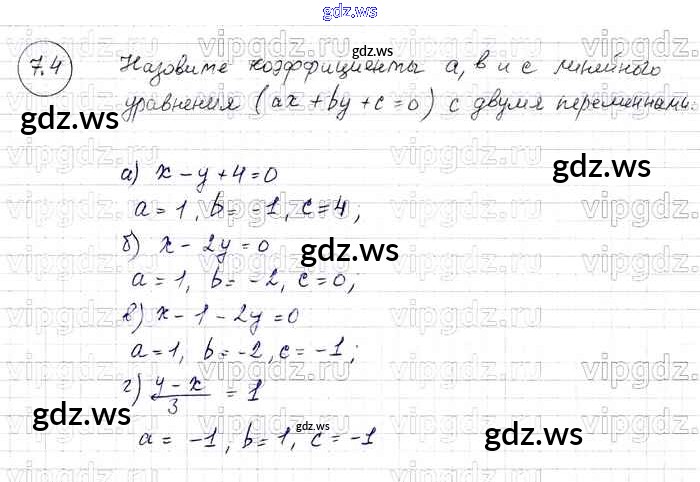 gdz.ws
7.4 Назовите коэффициенты a, b и c линейного
уравнения (ax + by + c = 0) с двумя переменными.
а) x - y + 4 = 0
a = 1, b = -1, c = 4,
б) x - 2y = 0
a = 1, b = -2, c = 0;
в) x - 1 - 2y = 0
a = 1, b = -2, c = -1;
г) (y - x)/3 = 1
a = -1, b = 1, c = -1
gdz.ws
gdz.ws
gdz.ws
gdz.ws
gdz.ws
gdz.ws
gdz.ws
vipgdz